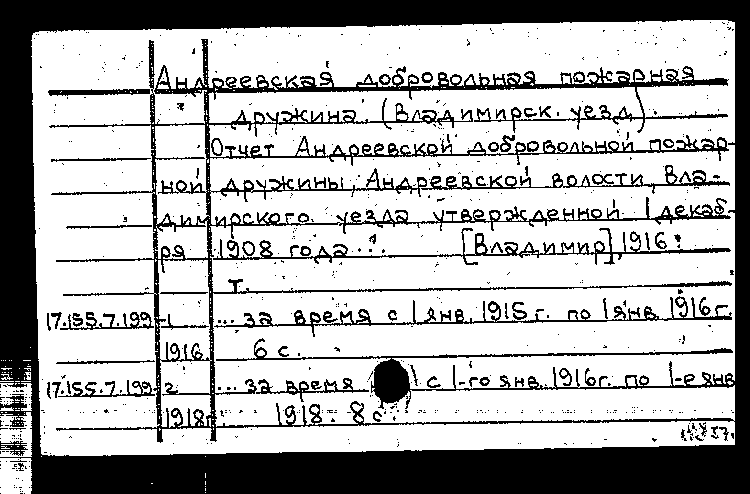 Андреевская добровольная пожарная
дружина. (Владимирск. уезд).
Отчет Андреевской добровольной пожар-
ной дружины, Андреевской волости, Вла-
димирского уезда утвержденной 1 декаб-
ря 1908 года... [Владимир], 1916.
т.
17.155.7.199-1 ... за время с 1 янв. 1915 г. по 1 янв 1916 г.
1916 6 с.
17.155.7.199-2 ... за время с 1-го янв. 1916 г. по 1-е янв
1918 г. 1918. 8 с.